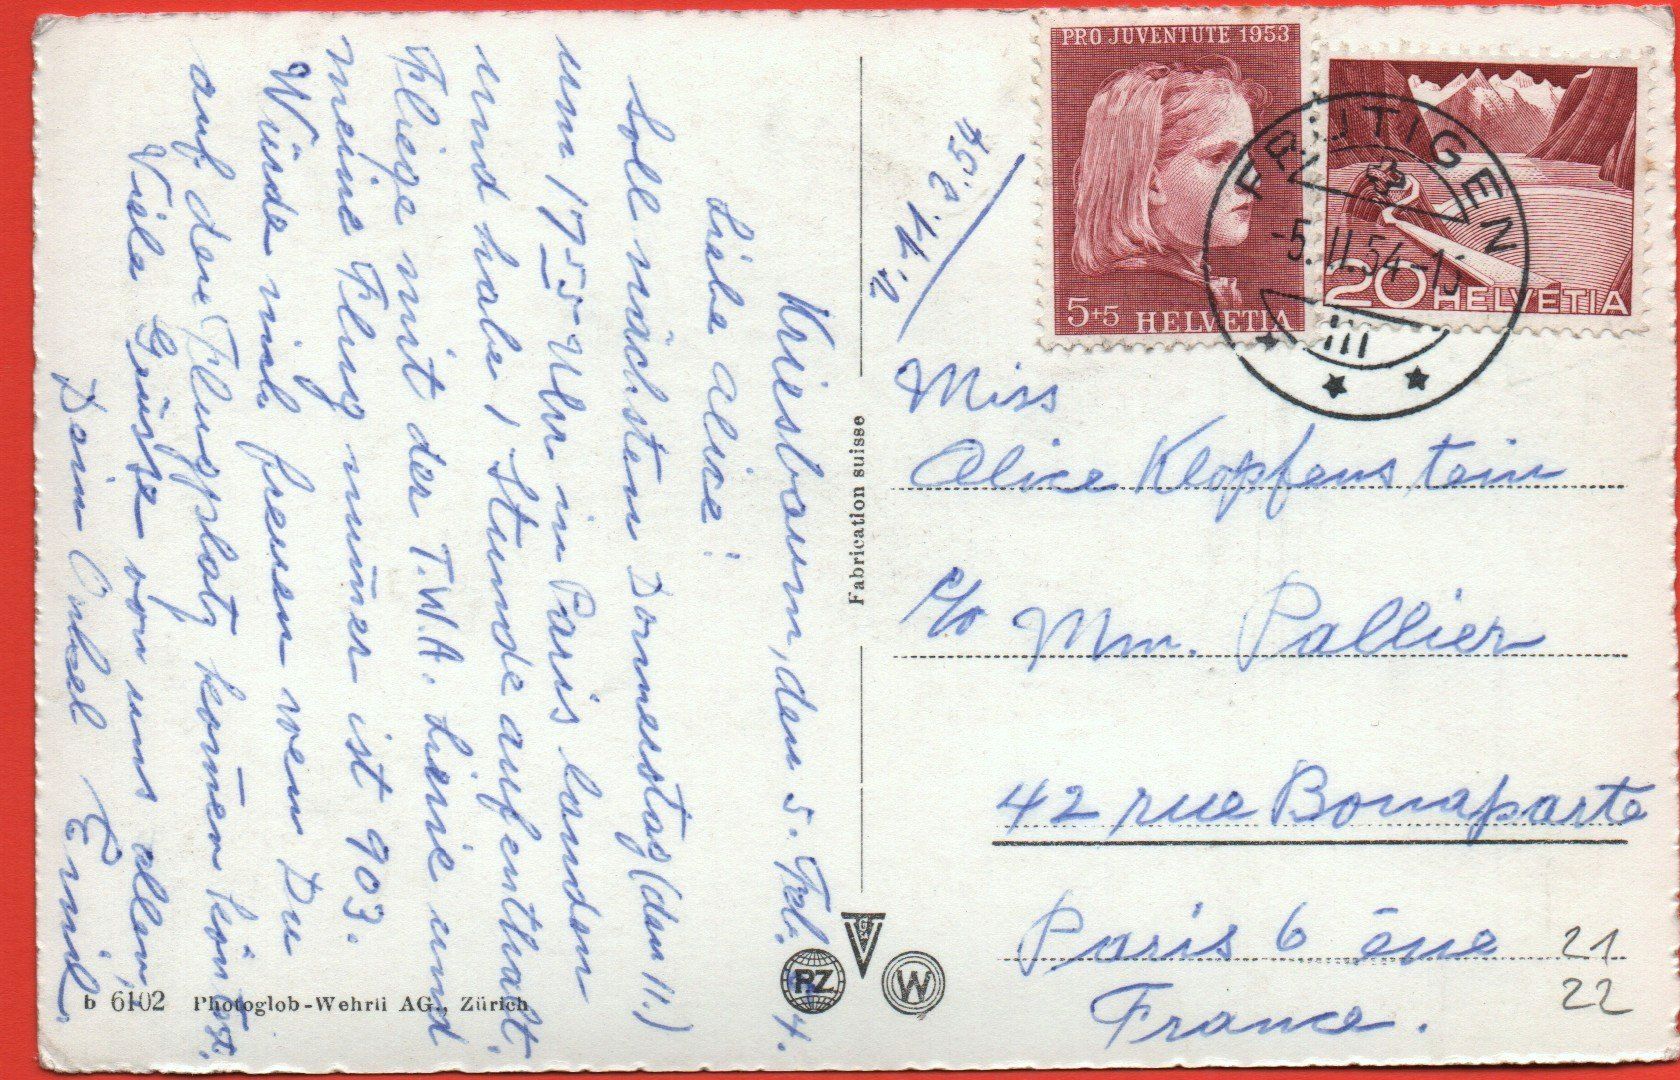 Kriesbaum, den 5. Feb. 54.
Liebe Alice!
Soll nächsten Donnerstag (den 11.)
um 17 55 Uhr in Paris landen
und habe 1 Stunde aufenthalt.
Fliege mit der T.W.A. Linie und
meine Flug num̄er ist 903.
Würde mich freuen wen Du
auf den Flugplatz kom̄en kön̄test.
Viele Grüsse von uns allen,
Dein Onkel Emil.
11.2.54
Miss
Alice Klopfenstein
p/o Mm. Pallier
42 rue Bonaparte
Paris 6 éne
France.
21
22
PRO JUVENTUTE 1953
5+5 HELVETIA
20 HELVETIA
FRUTIGEN
-5.II.54-1
Fabrication suisse
b 6102 Photoglob-Wehrli AG., Zürich
PZ
W